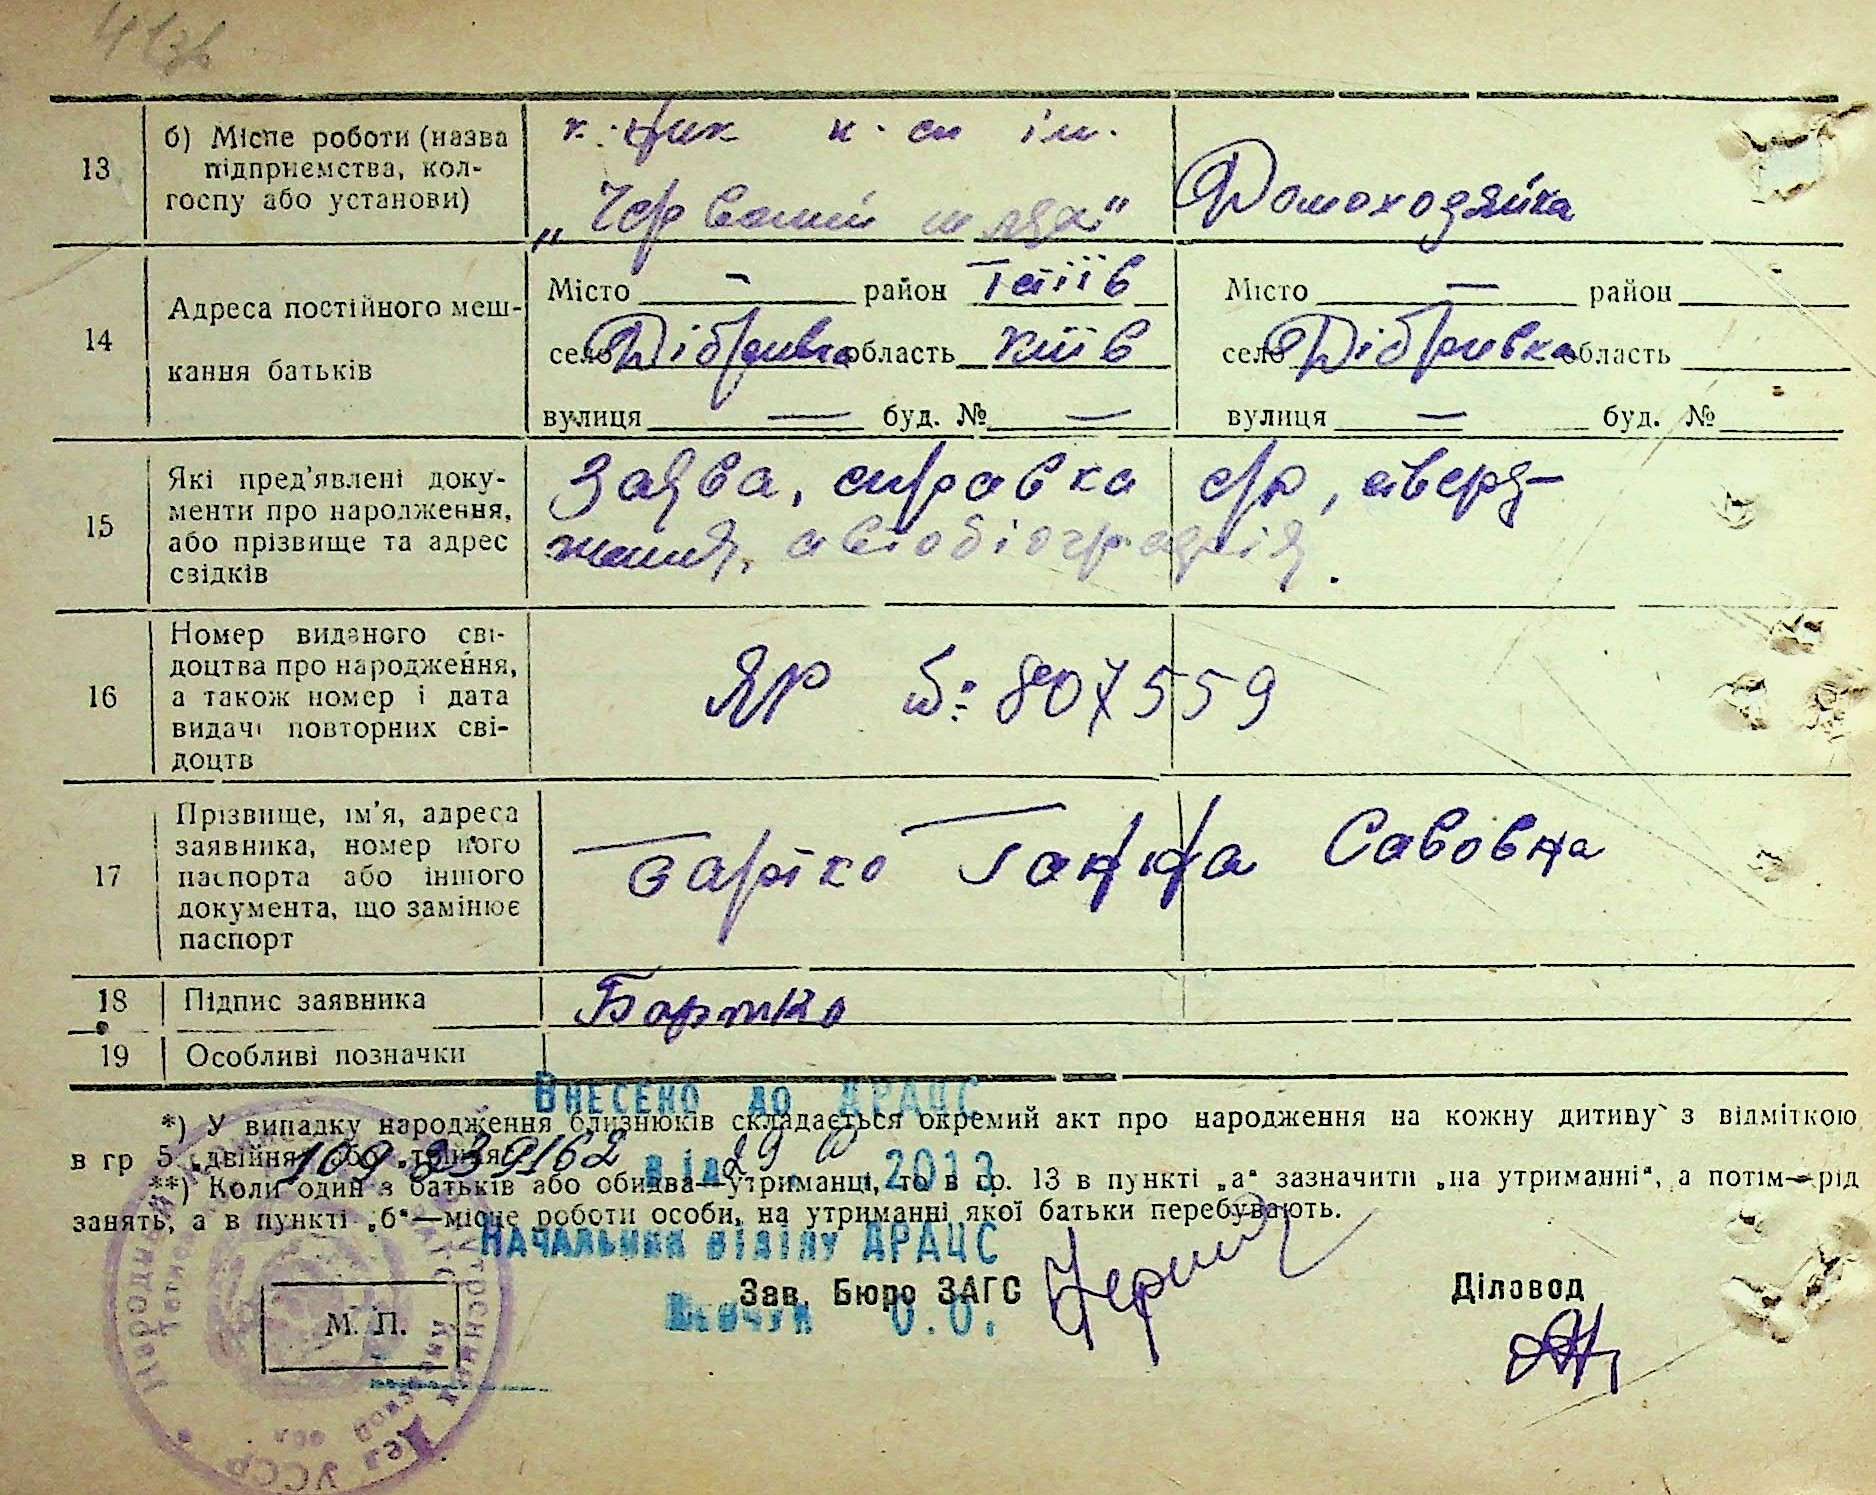 13
б) Місце роботи (назва
підприємства, кол-
госпу або установи)
к-ник к-сп ім.
„Червоний шлях"
Домохозяйка
14
Адреса постійного меш-
кання батьків
Місто — район Тетіїв
село Дібрівка область Київ
вулиця — буд. № —
Місто — район
село Дібрівка область
вулиця — буд. №
15
Які пред'явлені доку-
менти про народження,
або прізвище та адрес
свідків
Заява, справка с/р, стверд-
ження, автобіографія.
16
Номер виданого сві-
доцтва про народження,
а також номер і дата
видачі повторних сві-
доцтв
ЯР №: 807559
17
Прізвище, ім'я, адреса
заявника, номер його
паспорта або іншого
документа, що замінює
паспорт
Бартко Ганна Савовна
18
Підпис заявника
Бартко
19
Особливі позначки
Внесено до ДРАЦС
*) У випадку народження близнюків складається окремий акт про народження на кожну дитину з відміткою
в гр 5 „двійня" або „трійня"
від 29 2013
**) Коли один з батьків або обидва—утриманці, то в гр. 13 в пункті „а" зазначити „на утриманні", а потім—рід
занять, а в пункті „б"—місце роботи особи, на утриманні якої батьки перебувають.
Начальник відділу ДРАЦС
Зав. Бюро ЗАГС
Діловод
Шевчук О.О.
М. П.